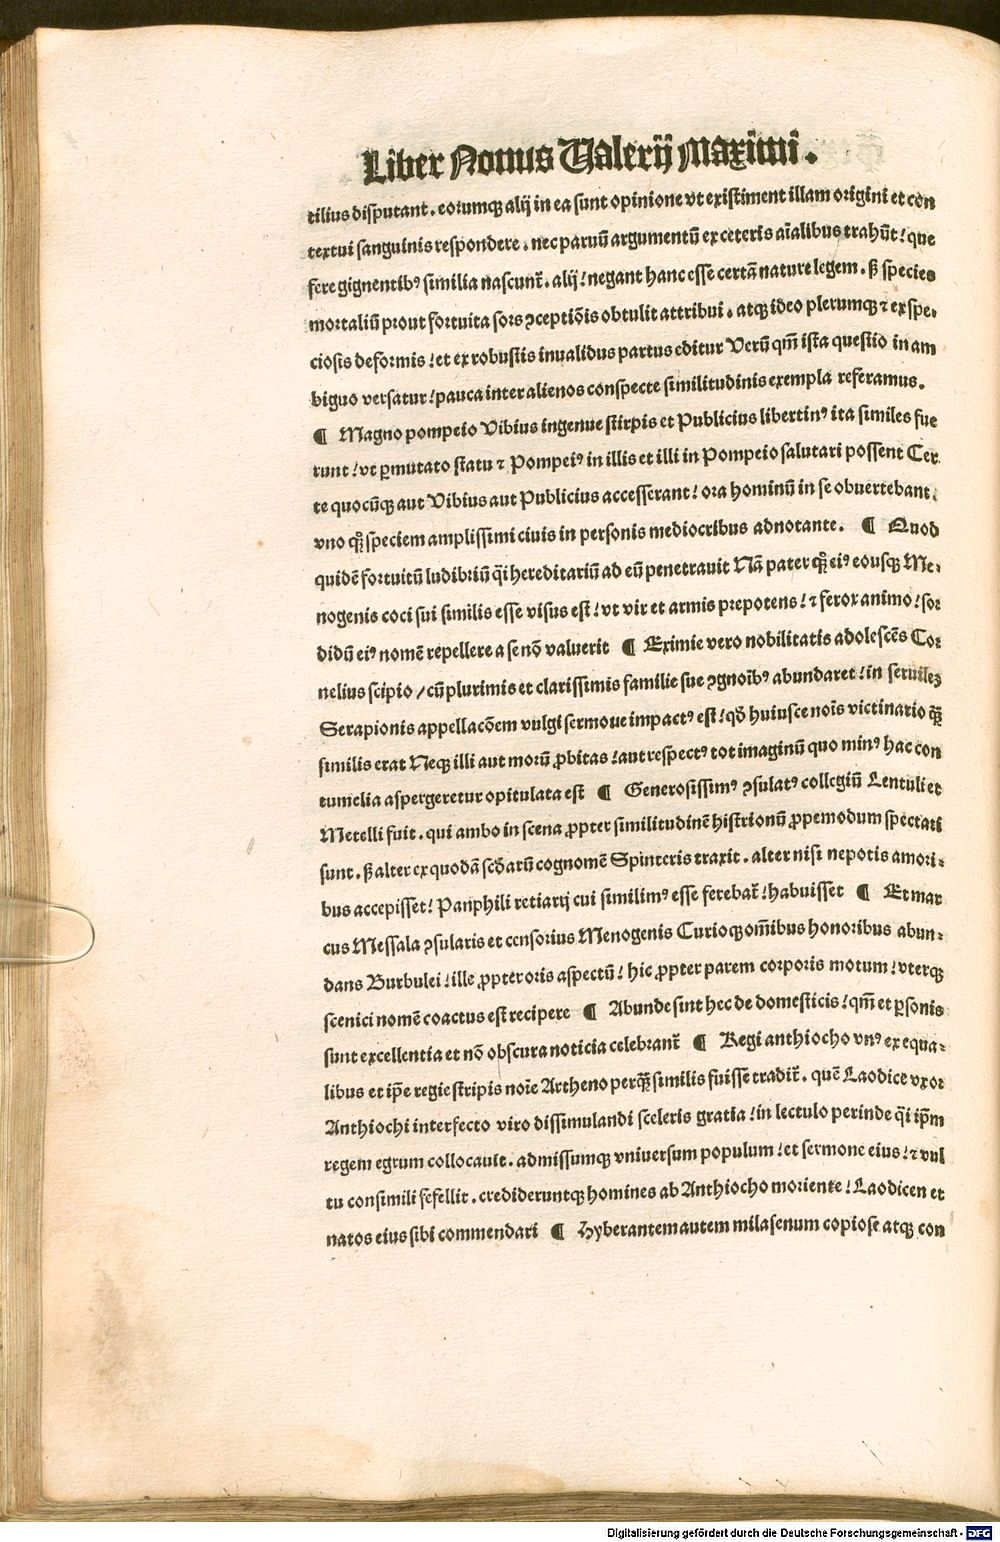 Liber Nonus Valerij Maximi.
tilius disputant. eorumqꝫ alij in ea sunt opinione vt existiment illam origini et con
textui sanguinis respondere. nec paruū argumentū ex ceteris aīalibus trahūt! que
fere gignentibꝰ similia nascunt̄. alij! negant hanc esse certā nature legem. ß species
mortaliū prout fortuita sors ꝯceptiōis obtulit attribui. atqꝫ ideo plerumqꝫ ⁊ ex spe.
ciosis deformis! et ex robustis inualidus partus editur Verū qm̄ ista questio in am
biguo versatur! pauca inter alienos conspecte similitudinis exempla referamus.
¶ Magno pompeio Vibius ingenue stirpis et Publicius libertinꝰ ita similes fue
runt! vt ꝑmutato statu ⁊ Pompeiꝰ in illis et illi in Pompeio salutari possent Cer
te quocūqꝫ aut Vibius aut Publicius accesserant! ora hominū in se obuertebant.
vno qꝫ speciem amplissimi ciuis in personis mediocribus adnotante. ¶ Quod
quidē fortuitū ludibriū q̄i hereditariū ad eū penetrauit Nā pater qꝫ eiꝰ eousqꝫ Me.
nogenis coci sui similis esse visus est! vt vir et armis prepotens! ⁊ ferox animo! sor
didū eiꝰ nomē repellere a se nō valuerit ¶ Eximie vero nobilitatis adolescēs Cor
nelius scipio / cū plurimis et clarissimis familie sue ꝯgnoībꝰ abundaret! in seruilez
Serapionis appellacōem vulgi sermoue impactꝰ est! qd̄ huiusce noīs victinario q̄ꝫ
similis erat Neqꝫ illi aut morū ꝓbitas! aut respectꝰ tot imaginū quo minꝰ hac con
tumelia aspergeretur opitulata est ¶ Generosissimꝰ ꝯsulatꝰ collegiū Lentuli et
Metelli fuit. qui ambo in scena ꝓpter similitudinē histrionū ꝓpemodum spectati
sunt. ß alter ex quodā scd̄arū cognomē Spinteris traxit. alter nisi nepotis amori.
bus accepisset! Panphili retiarij cui similimꝰ esse ferebat̄! habuisset ¶ Et mar
cus Messala ꝯsularis et censorius Menogenis Curioqꝫ om̄ibus honoribus abun.
dans Burbulei! ille ꝓpter oris aspectū! hic ꝓpter parem corporis motum! vterqꝫ
scenici nomē coactus est recipere ¶ Abunde sint hec de domesticis! qm̄ et ꝑsonis
sunt excellentia et nō obscura noticia celebrant̄ ¶ Regi anthiocho vnꝰ ex equa.
libus et ip̄e regie stripis noīe Artheno perq̄ꝫ similis fuisse tradit̄. quē Laodice vxor
Anthiochi interfecto viro dissimulandi sceleris gratia! in lectulo perinde q̄i ip̄m
regem egrum collocauit. admissumqꝫ vniuersum populum! et sermone eius! ⁊ vul
tu consimili fefellit. credideruntqꝫ homines ab Anthiocho moriente! Laodicen et
natos eius sibi commendari ¶ Hyberantem autem milasenum copiose atqꝫ con
Digitalisierung gefördert durch die Deutsche Forschungsgemeinschaft - DFG